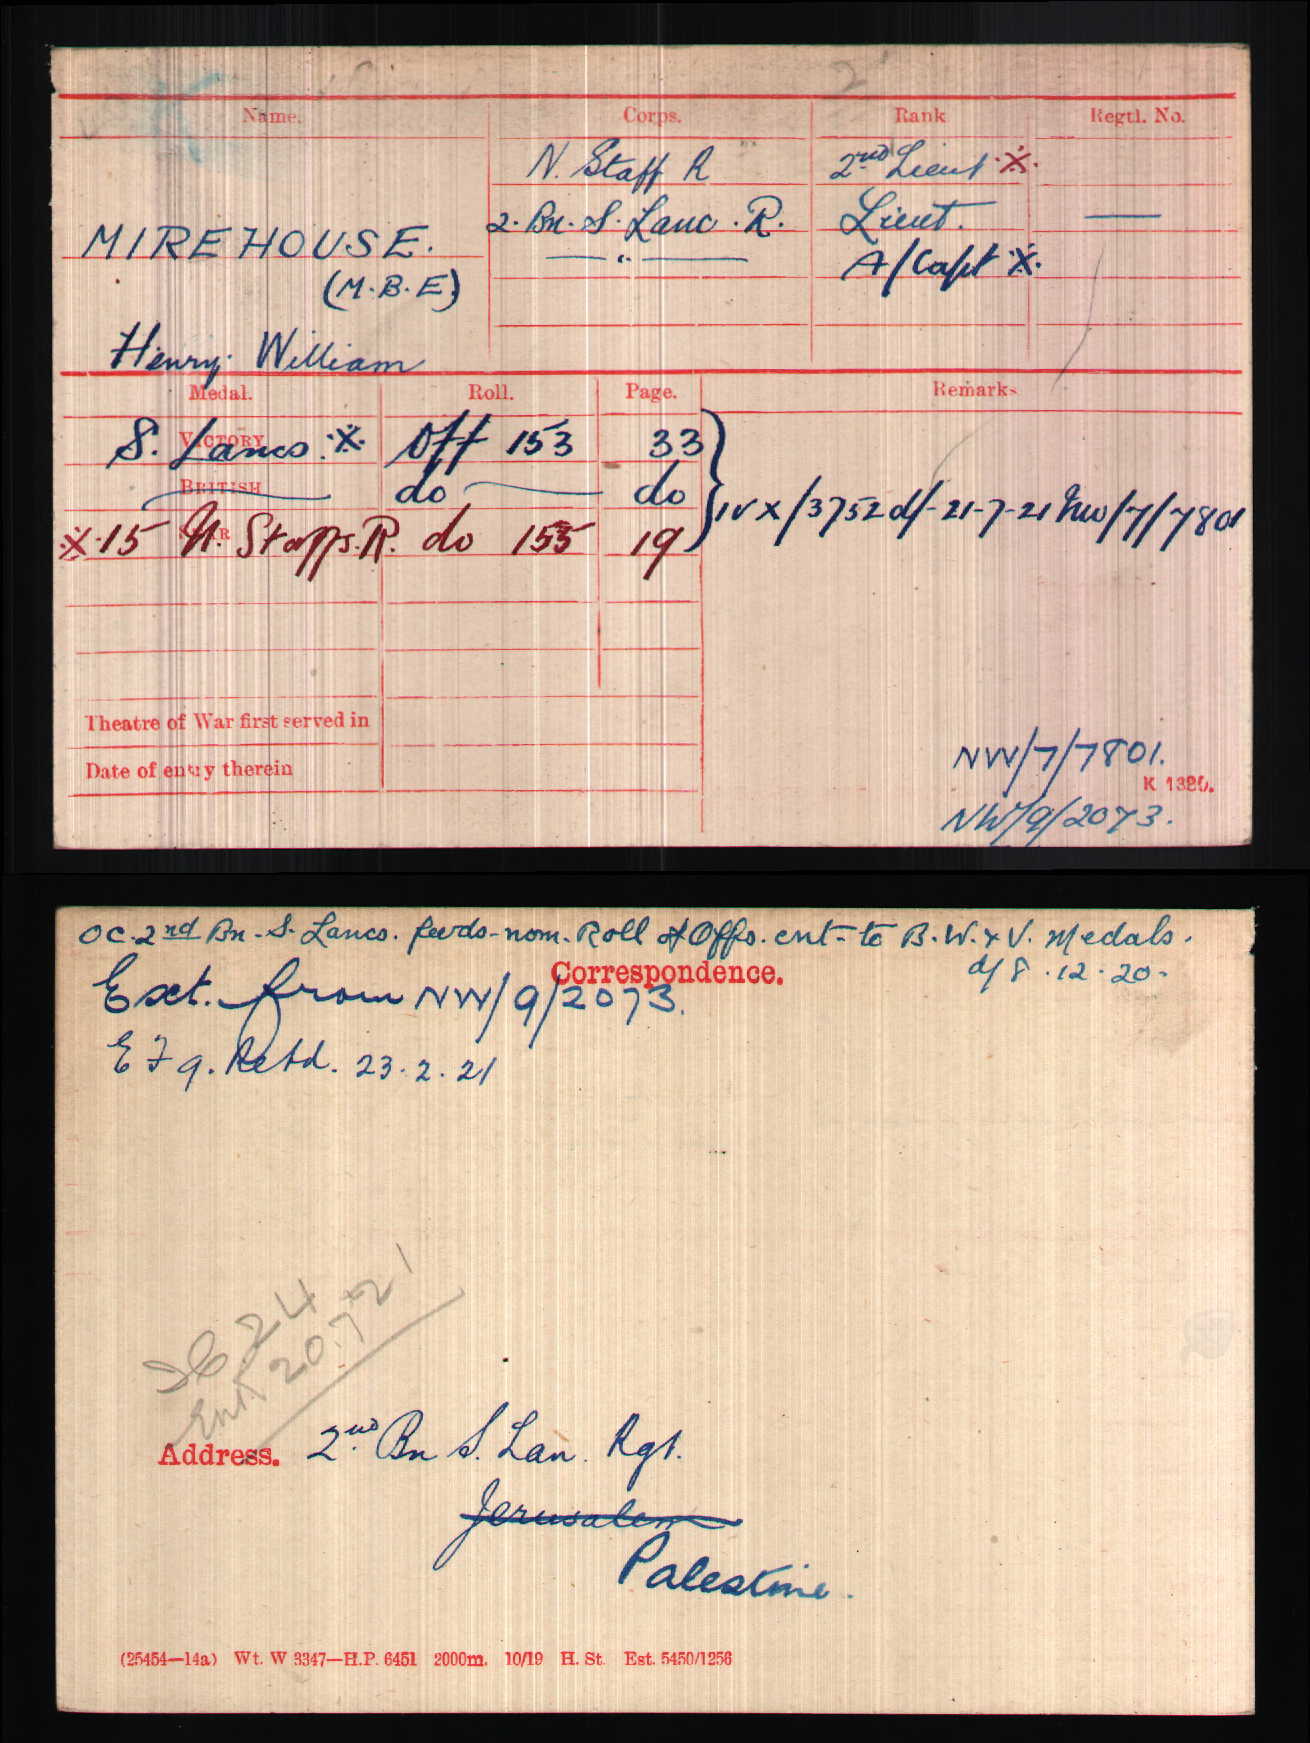 Name. Corps. Rank Regtl. No.
N. Staff R 2nd Lieut ※
MIREHOUSE. 2. Bn. S. Lanc. R. Lieut. —
(M.B.E) — " — A/Capt ※
Henry William
Medal. Roll. Page. Remarks
VICTORY
S. Lancs. ※ Off 153 33
BRITISH do do
IVX/3752 d/- 21-7-21 NW/7/7801
※ 15 STAR N. Staffs. R. do 155 19
Theatre of War first served in
Date of entry therein
NW/7/7801.
K 1380.
NW/9/2073.
OC. 2nd Bn. S. Lancs. fwds. nom. Roll of Offs. ent. to B.W. & V. Medals.
d/ 8.12.20.
Correspondence.
Ext. from NW/9/2073.
E F 9. Retd. 23.2.21
24
20.7.21
Address. 2nd Bn S. Lan. Rgt.
Jerusalem
Palestine.
(25454—14a) Wt. W 3347—H.P. 6451 2000m. 10/19 H. St. Est. 5450/1256